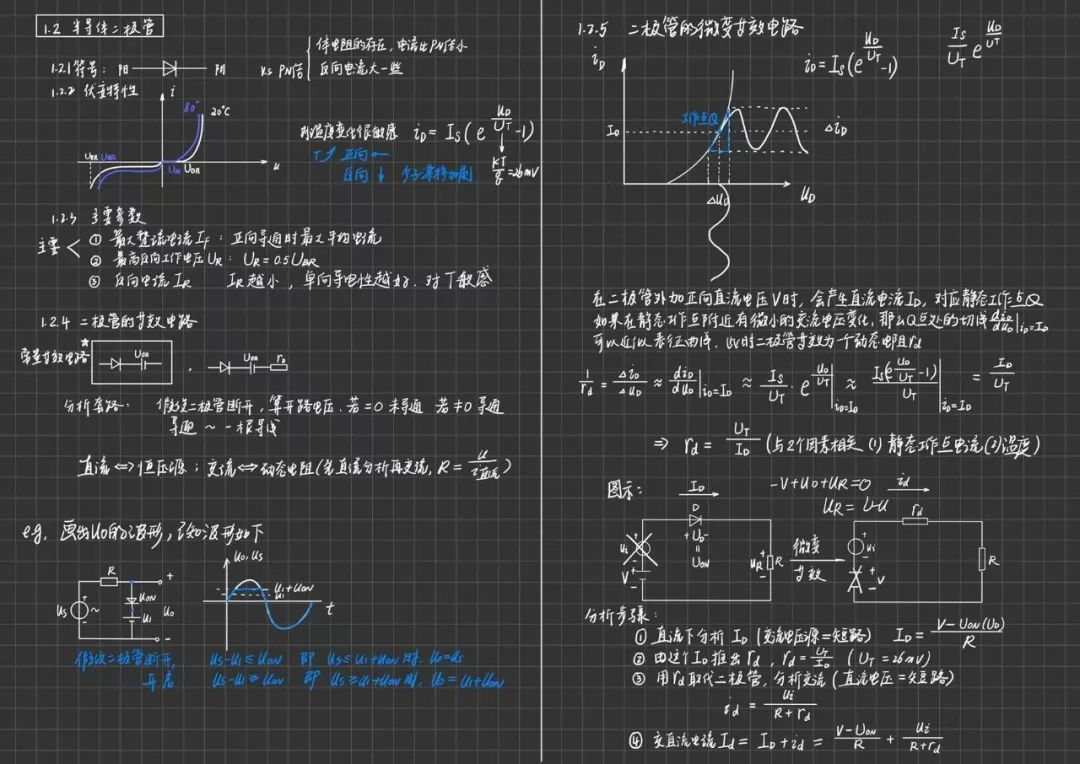 1.2 半导体二极管
1.2.1 符号: 阳 阴
VS PN结
体电阻的存在, 电流比PN结小
反向电流大一些
1.2.2 伏安特性
i
80° 20°C
UBR UBR Uon UON u
对温度变化很敏感 iD = IS(e^(UD/UT) -1)
T↗ 正向 ←
反向 ↓ 少子漂移加剧
KT/q = 26mV
1.2.3 主要参数
主要
① 最大整流电流 If: 正向导通时最大平均电流
② 最高反向工作电压 UR: UR = 0.5UBR
③ 反向电流 IR IR越小, 单向导电性越好. 对T敏感
1.2.4 二极管的等效电路
常量等效电路 ★ Uon , Uon rD
分析套路: 假设二极管断开, 算开路电压. 若=0 未导通 若≠0 导通
导通 ~ 一根导线
直流⇔恒压源; 交流⇔动态电阻(先直流分析再交流, R =
e.g. 画出uo的波形, 已知波形如下
uo, us
ui+uon
ui
t
R
us ~ uon ui uo
+
-
假设二极管断开,
us-ui ≤ uon 即 us ≤ ui+uon 时. uo=us
us-ui ≥ uon 即 us ≥ ui+uon 时, uo = ui+uon
1.2.5 二极管的微变等效电路
iD
iD = IS(e^(UD/UT) -1)
IS/UT e^(UD/UT)
工作点Q
ID
ΔiD
ΔUD
UD
在二极管外加正向直流电压V时, 会产生直流电流ID, 对应静态工作点Q
如果在静态工作点附近有微小的交流电压变化, 那么Q点处的切线 diD/duD|iD=ID
可以近似表征曲线. 此时二极管等效为一个动态电阻rd
1/rd = ΔiD/ΔuD ≈ diD/duD|iD=ID ≈ IS/UT · e^(UD/UT)|iD=ID ≈ IS(e^(UD/UT) -1)/UT|iD=ID = ID/UT
⇒ rd = UT/ID (与2个因素相关 (1) 静态工作点电流 (2)温度)
图示: ID
-V+UD+UR=0
id
D
+ UD -
=
UON
ui
V
uR
R
微变
等效
rd
ui
V
R
分析步骤:
① 直流下分析 ID (交流电压源=短路) ID = V-UON(UD)/R
② 由这个ID推出rd, rd = UT/ID (UT = 26mV)
③ 用rd取代二极管, 分析交流 (直流电压=短路)
id = ui/R+rd
④ 交直流电流 Id = ID + id = V-UON/R + ui/R+rd